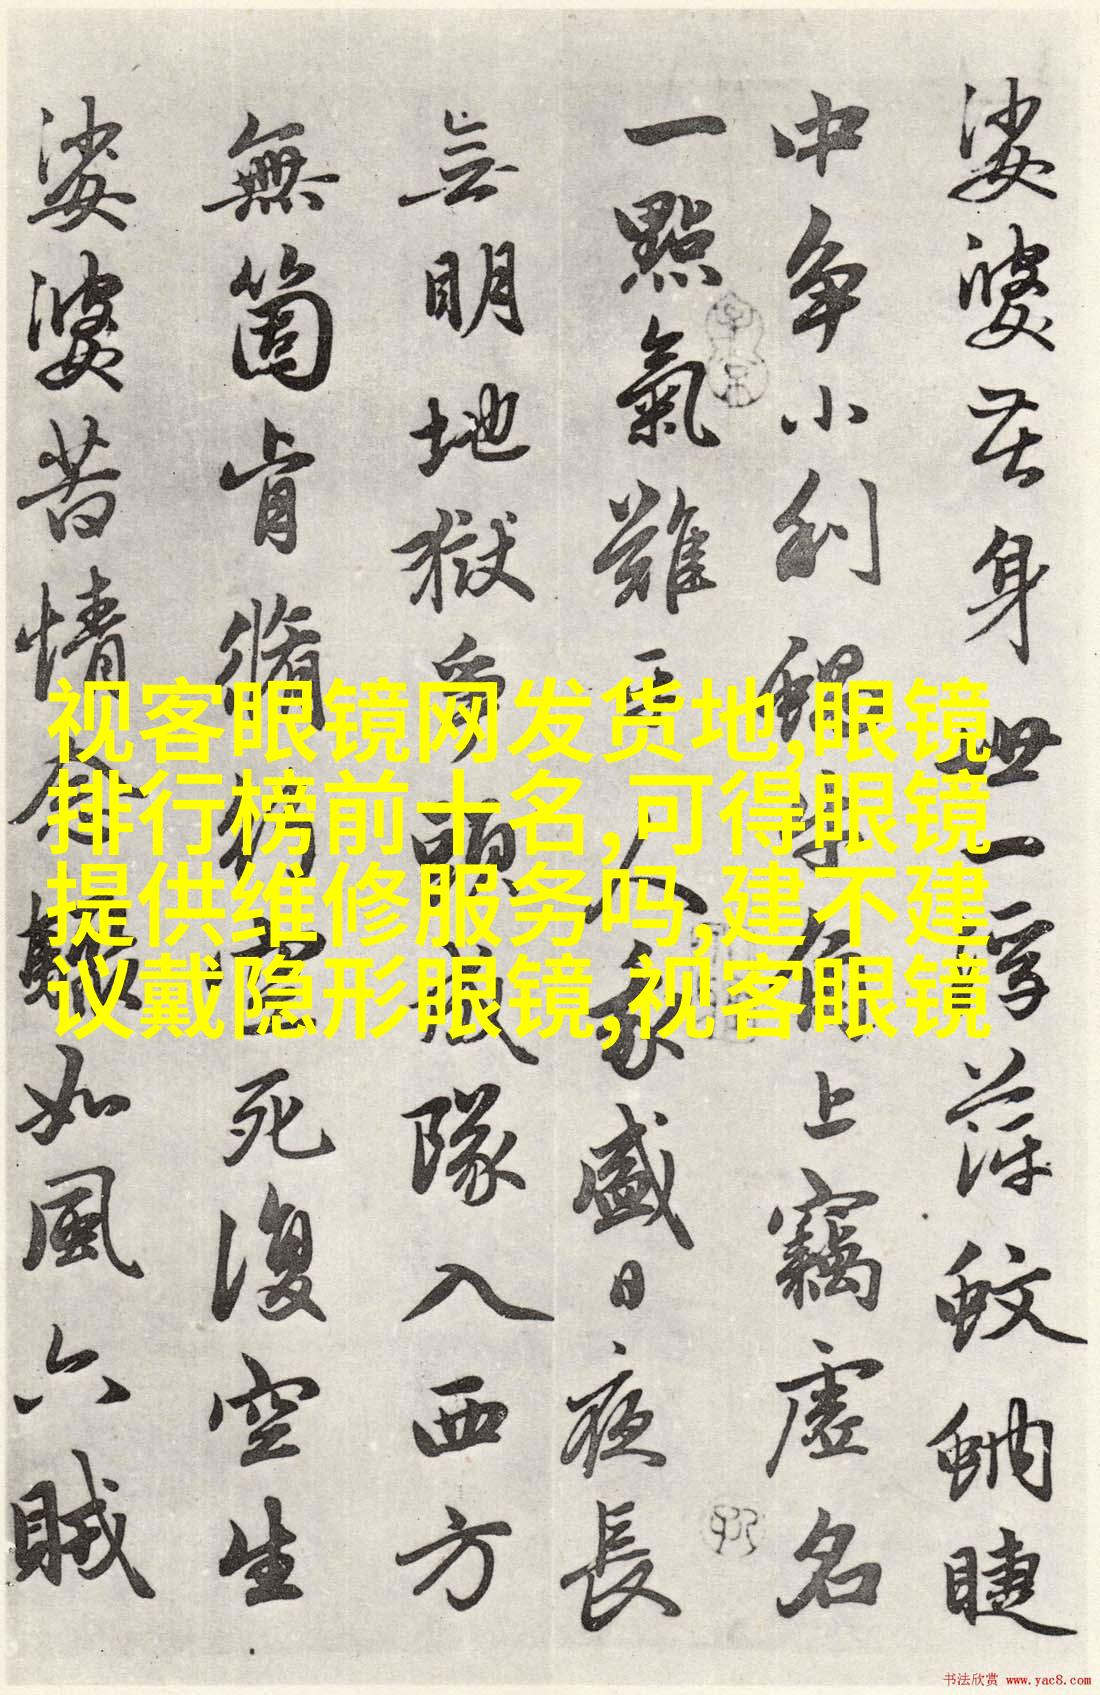 娑婆苦身世一浮萍蚊蚋睫
中争小利蝸牛角上竊虛名
一點氣難平人我盛日夜長
無明地獄争頭成隊入西方
無箇肯脩行空死復空生
娑婆苦情念驟如風六賊
视客眼镜网发货地,眼镜
排行榜前十名,可得眼镜
提供维修服务吗,建不建
议戴隐形眼镜,视客眼镜
书法欣赏 www.yac8.com